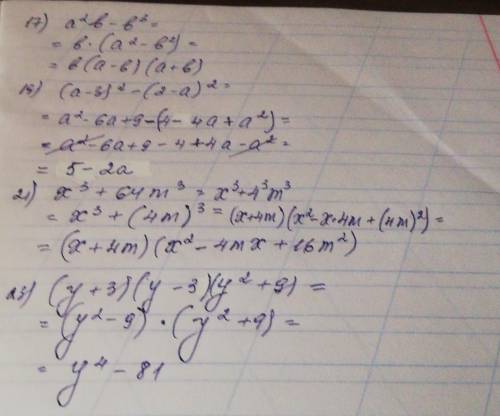 17) a²b - b³ =
= b·(a² - b²) =
= b(a-b)(a+b)
19) (a-3)² - (2-a)² =
= a² - 6a + 9 - (4 - 4a + a²) =
= a² - 6a + 9 - 4 + 4a - a² =
= 5 - 2a
21) x³ + 64m³ = x³ + 4³m³
= x³ + (4m)³ = (x+4m)(x² - x·4m + (4m)²) =
= (x+4m)(x² - 4mx + 16m²)
23) (y+3)(y-3)(y²+9) =
= (y²-9)·(y²+9) =
= y⁴ - 81